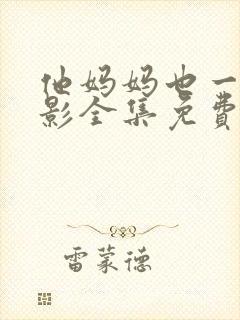 他妈妈也一
影全集免费
雷蒙德